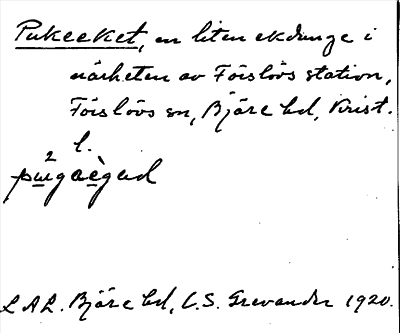 Pukeeket, en liten ekdunge i
närheten av Förslövs station,
Förslövs sn, Bjäre hd, Krist.
l.
L.A.L. Bjäre hd, C.S. Grevander 1920.